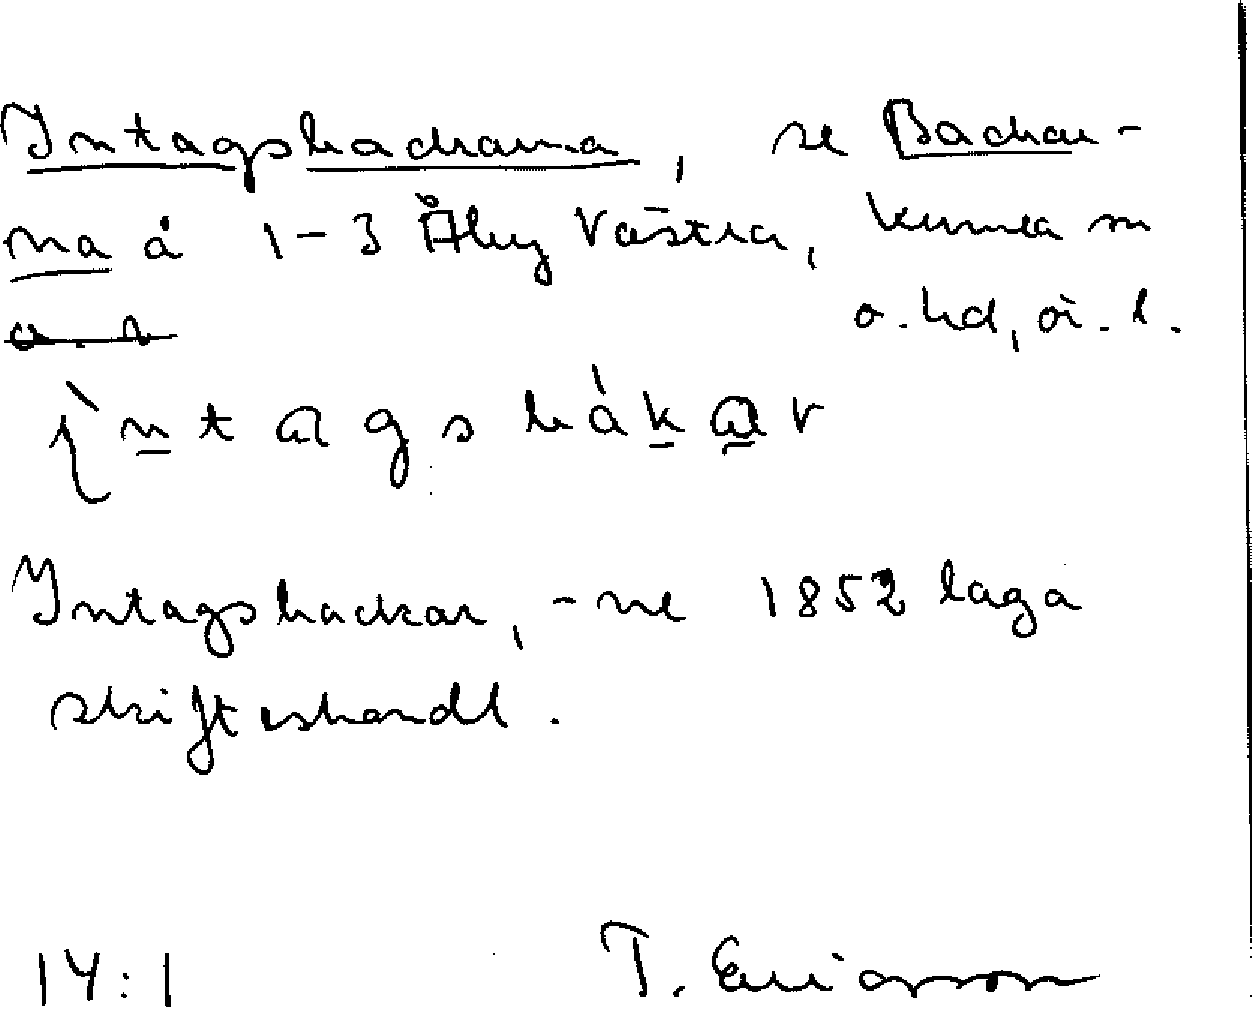 Intagshackarna, se Backar-
na å 1-3 Åby Västra, Kumla sn
o. hd, ö. l.
ìntagshákar
Intagshackar, -ne 1852 laga
skifteshandl.
14:1 T. Ericsson